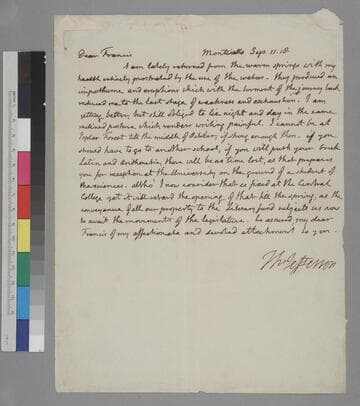 Dear Francis Monticello Sep. 11. 18.
I am lately returned from the warm springs with my
health entirely prostrated by the use of the waters. they produced an
imposthume and eruptions which with the torment of the journey back
reduced me to the last stage of weakness and exhaustion. I am
getting better, but still obliged to lie night and day in the same
reclined posture which renders writing painful. I cannot be at
Poplar Forest till the middle of October, if strong enough then. if you
should have to go to another school, if you will push your Greek
Latin and Arithmetic, there will be no time lost, as that prepares
you for reception at the University on the ground of a student of
the sciences. altho' I now consider that as fixed at the Central
College yet it will retard the opening of that till the spring, as the
conveyance of all our property to the Literary fund subjects us now
to await the movements of the legislature. be assured my dear
Francis of my affectionate and devoted attachment to you.
Th: Jefferson